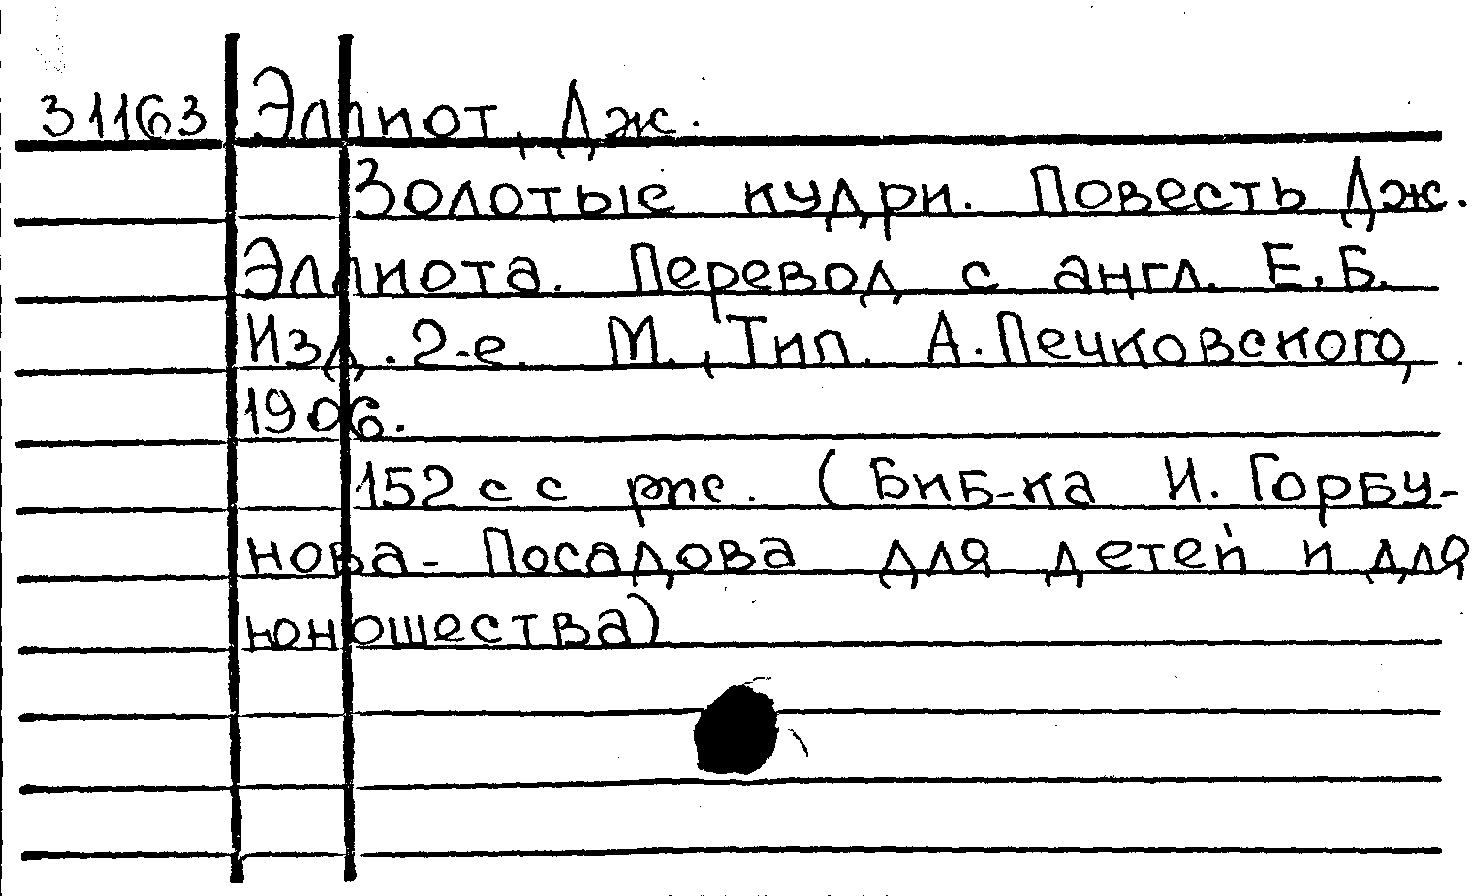 31163 Эллиот, Дж.
Золотые кудри. Повесть Дж.
Эллиота. Перевод с англ. Е.Б.
Изд. 2-е. М., Тип. А.Печковского,
1906.
152 с с рис. (Биб-ка И. Горбу-
нова-Посадова для детей и для
юношества)